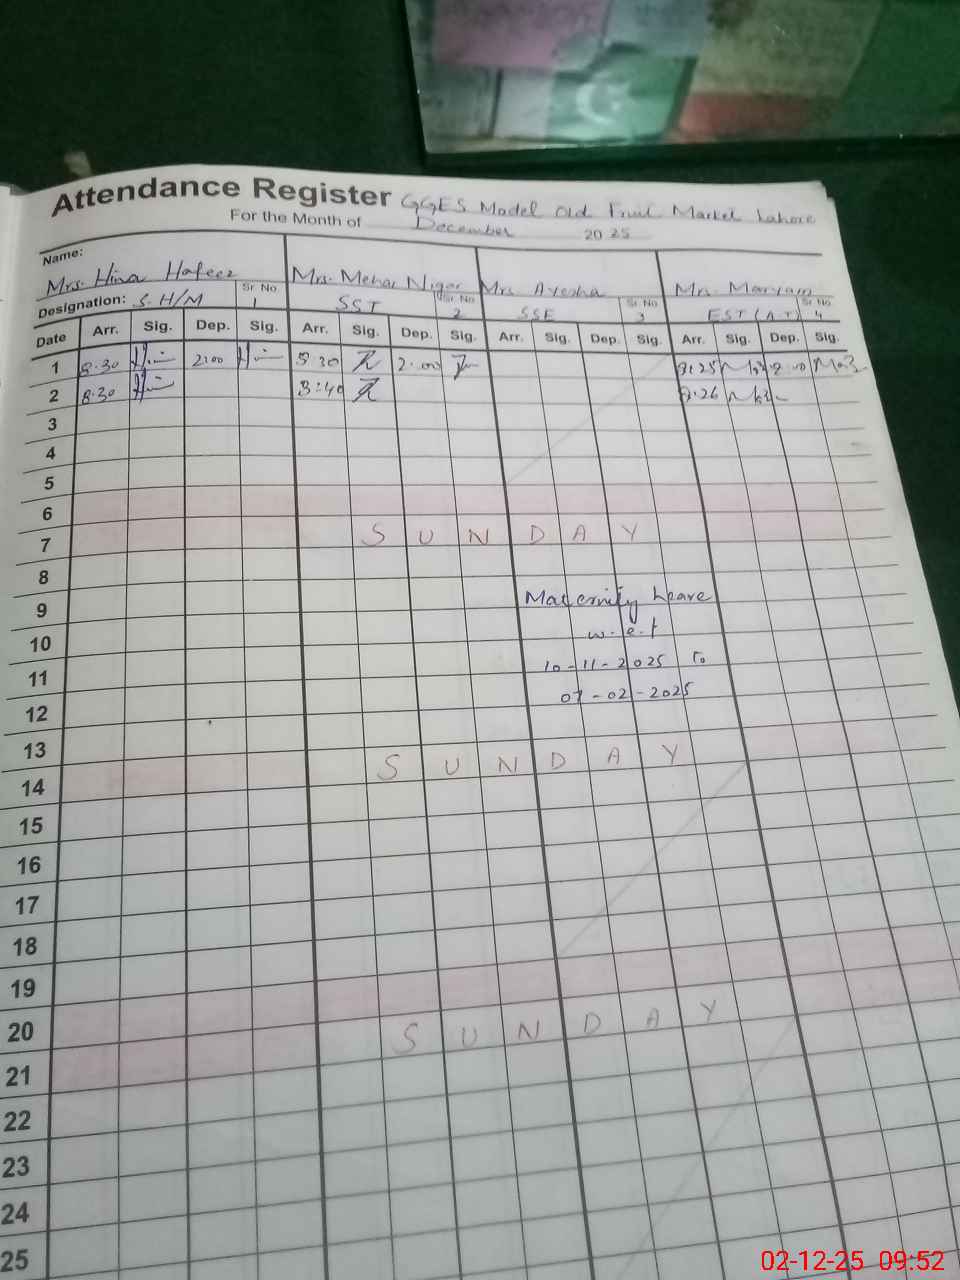 Attendance Register GGES Model Old Fruit Market Lahore
For the Month of December 2025
Name:
Mrs. Hina Hafeez Mrs. Mehar Nigar Mrs Ayesha Mrs. Maryam
Designation: S.H/M Sr No 1 SST Sr. No 2 SSE Sr. No 3 EST (A.T) Sr No 4
Date Arr. Sig. Dep. Sig. Arr. Sig. Dep. Sig. Arr. Sig. Dep. Sig. Arr. Sig. Dep. Sig.
1 8.30 2:00 8 30 2.00 8:25
2 8.30 8:40 8.26
3
4
5
6
7 SUNDAY
8
9 Maternity Leave
10 w.e.f
11 10-11-2025 to
12 07-02-2025
13
14 SUNDAY
15
16
17
18
19
20
21 SUNDAY
22
23
24
25
02-12-25 09:52